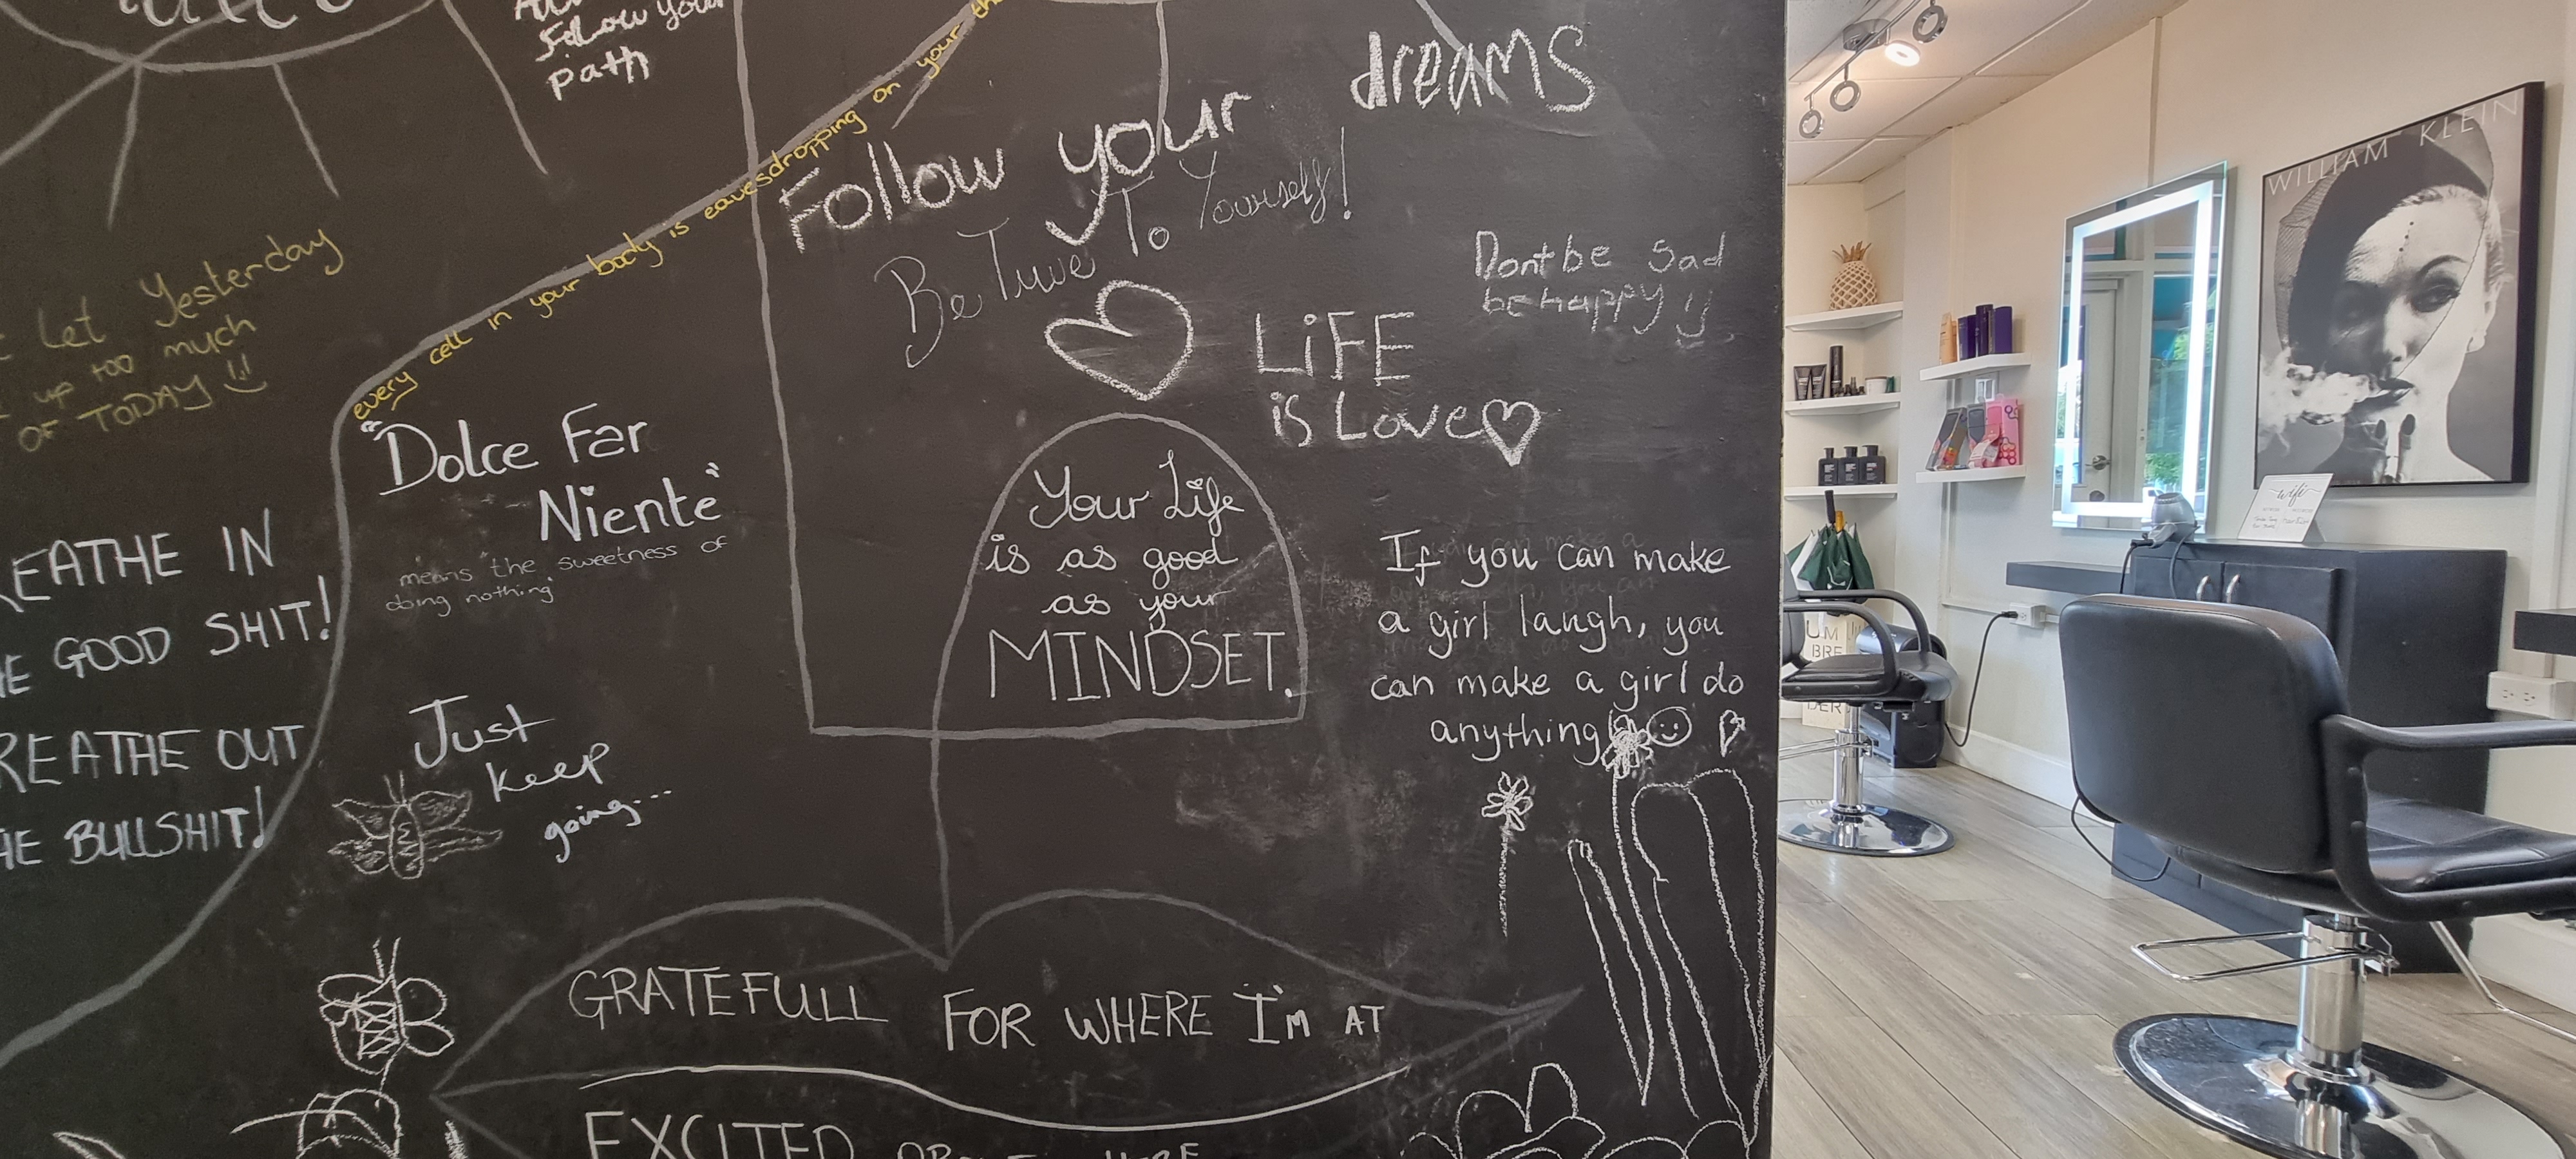 Follow your
path
every cell in your body is eavesdropping on your
Let Yesterday
up too much
OF TODAY
"Dolce Far
Niente"
means "the sweetness of
doing nothing"
EATHE IN
GOOD SHIT!
REATHE OUT
BULLSHIT!
Just
keep
going...
dreams
Follow your
Be True To Yourself!
Dont be Sad
be happy
LiFE
is Love
Your Life
is as good
as your
MINDSET.
If you can make
a girl laugh, you
can make a girl do
anything
GRATEFULL FOR WHERE I'M AT
EXCITED
WILLIAM KLEIN
wifi
UM
BRE